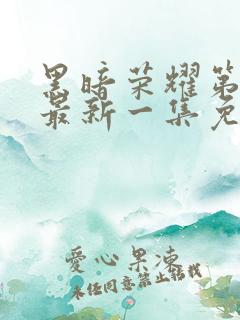 黑暗荣耀第
最新一集免
爱心果冻
未经同意禁止转载